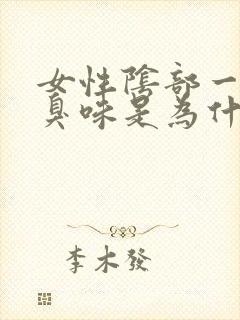 女性陰部一
臭味是為什
李木發